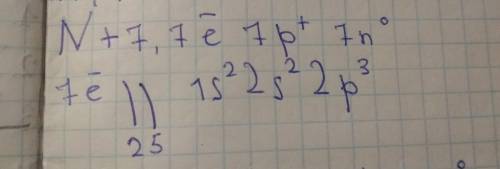 N + 7, 7ē 7p⁺ 7n⁰
7ē )) 1s² 2s² 2p³
25